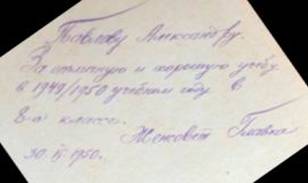 Павлову Александру.
За отличную и хорошую учебу
в 1949/1950 учебном году в
8-а классе.
30.VI 1950.